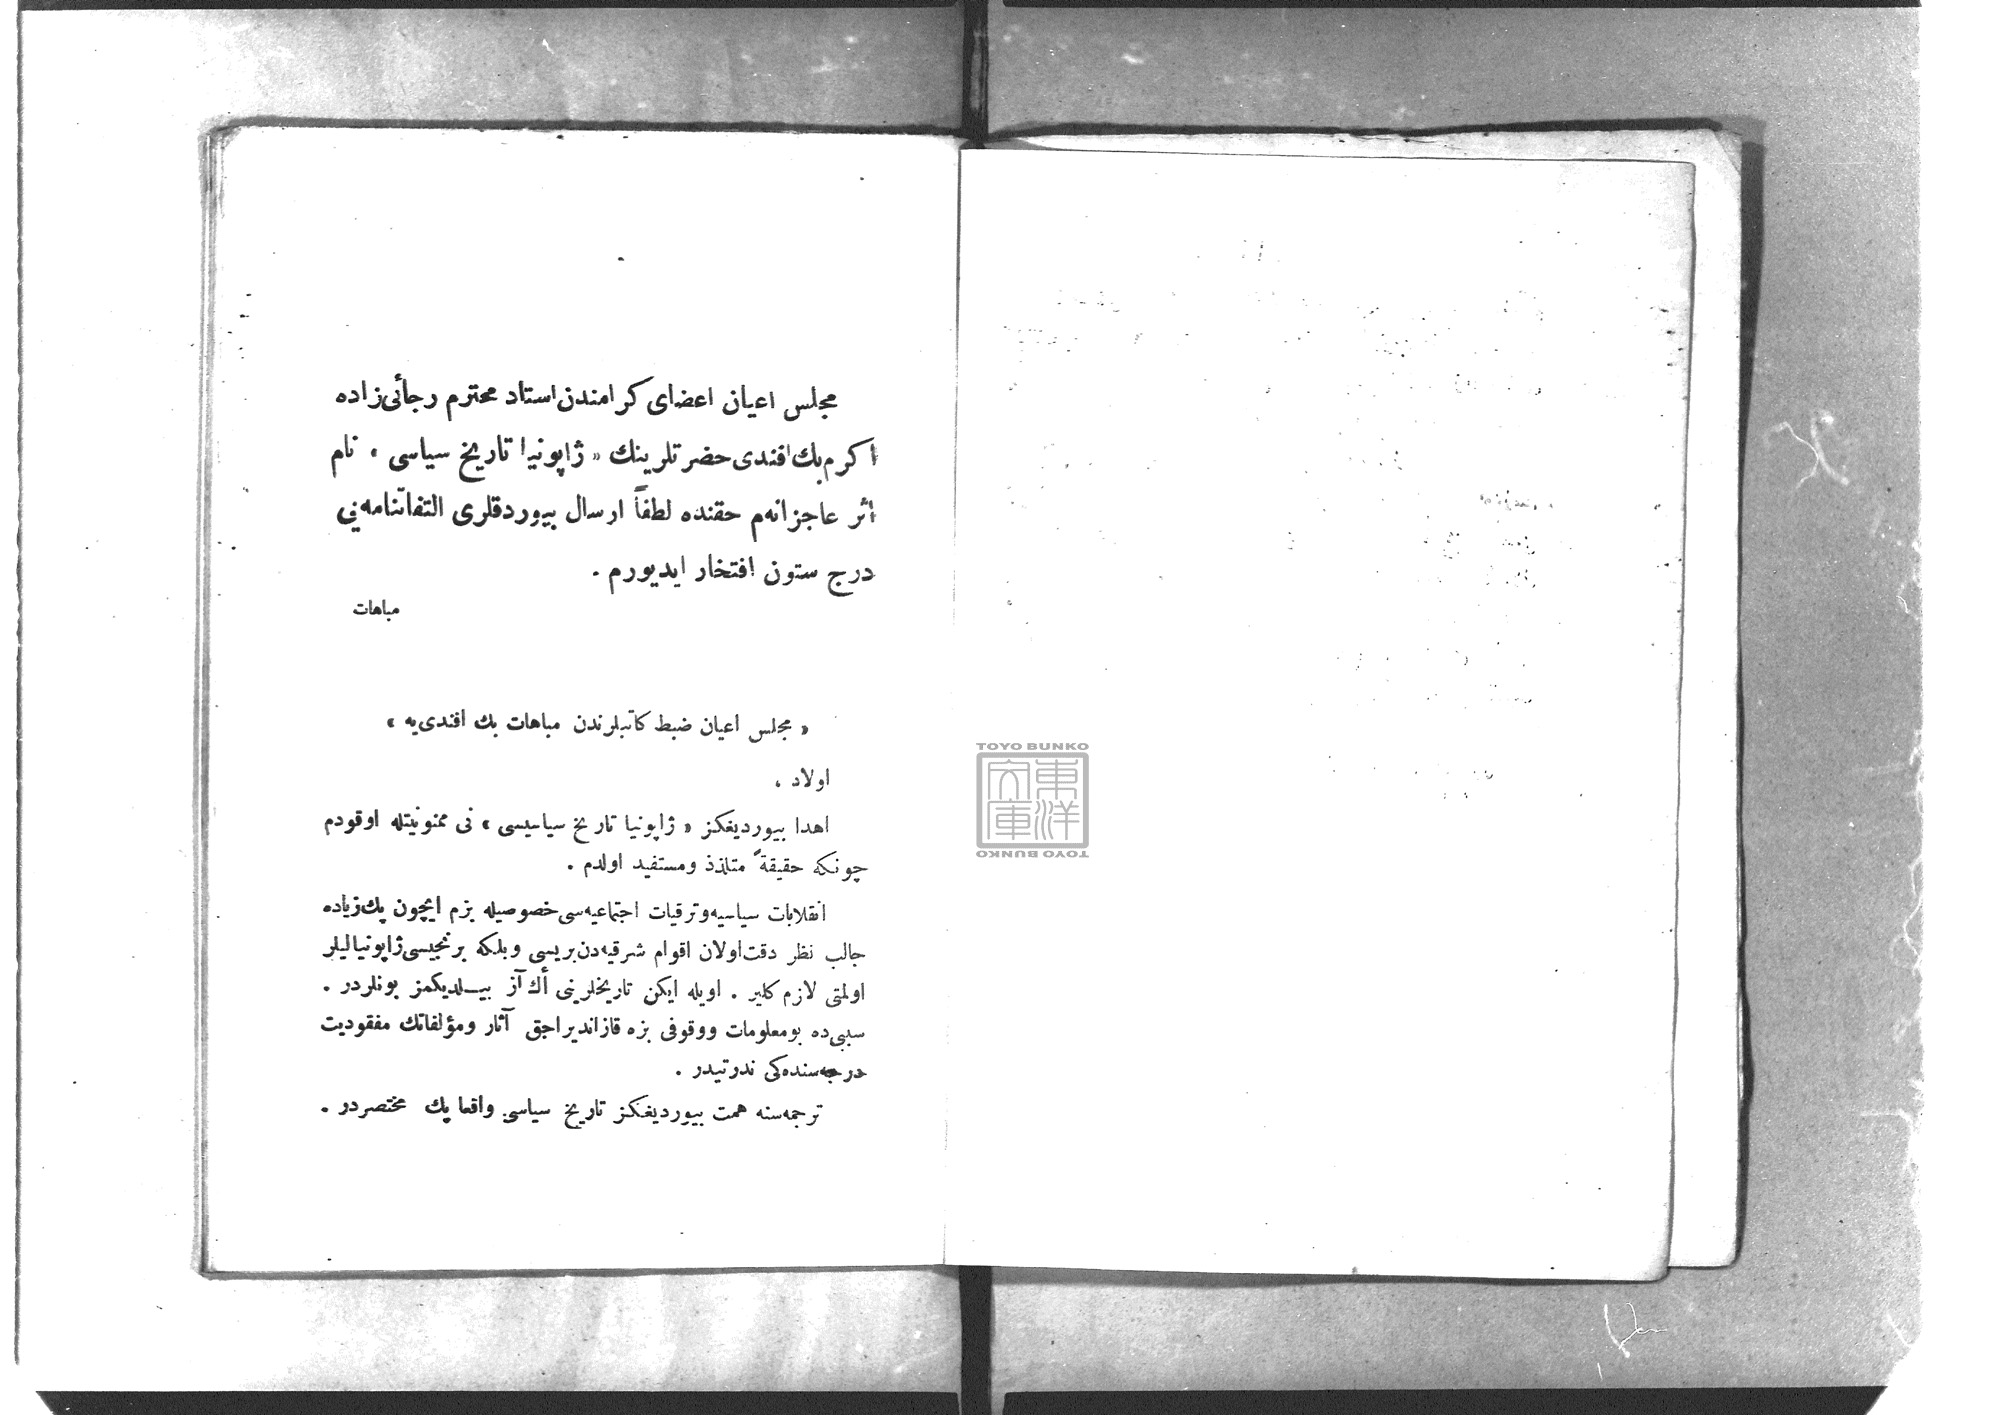 مجلس اعيان اعضای كرامندن استاد محترم رجائی زاده
اكرم بك افندی حضرتلرينك « ژاپونيا تاريخ سياسی » نام
اثر عاجزانه‌م حقنده لطفاً ارسال بيوردقلری التفاتنامه‌يی
درج ستون افتخار ايديورم .
مباهات
« مجلس اعيان ضبط كاتبلرندن مباهات بك افندی‌يه »
اولاد ،
اهدا بيورديغكز « ژاپونيا تاريخ سياسيسی » نی ممنونيتله اوقودم
چونكه حقيقةً متلذذ ومستفيد اولدم .
انقلابات سياسيه وترقيات اجتماعيه‌سی خصوصيله بزم ايچون پك زياده
جالب نظر دقت اولان اقوام شرقيه‌دن بريسی وبلكه برنجيسی ژاپونياليلر
اولمق لازم كلير . اويله ايكن تاريخلرينی أك آز بيلديكمز بونلردر .
سببی ده بو معلومات ووقوفی بزه قازانديراجق آثار ومؤلفاتك مفقوديت
درجه‌سنده‌كی ندرتيدر .
ترجمه‌سنه همت بيورديغكز تاريخ سياسی واقعا پك مختصردر .
TOYO BUNKO
東洋
文庫
TOYO BUNKO